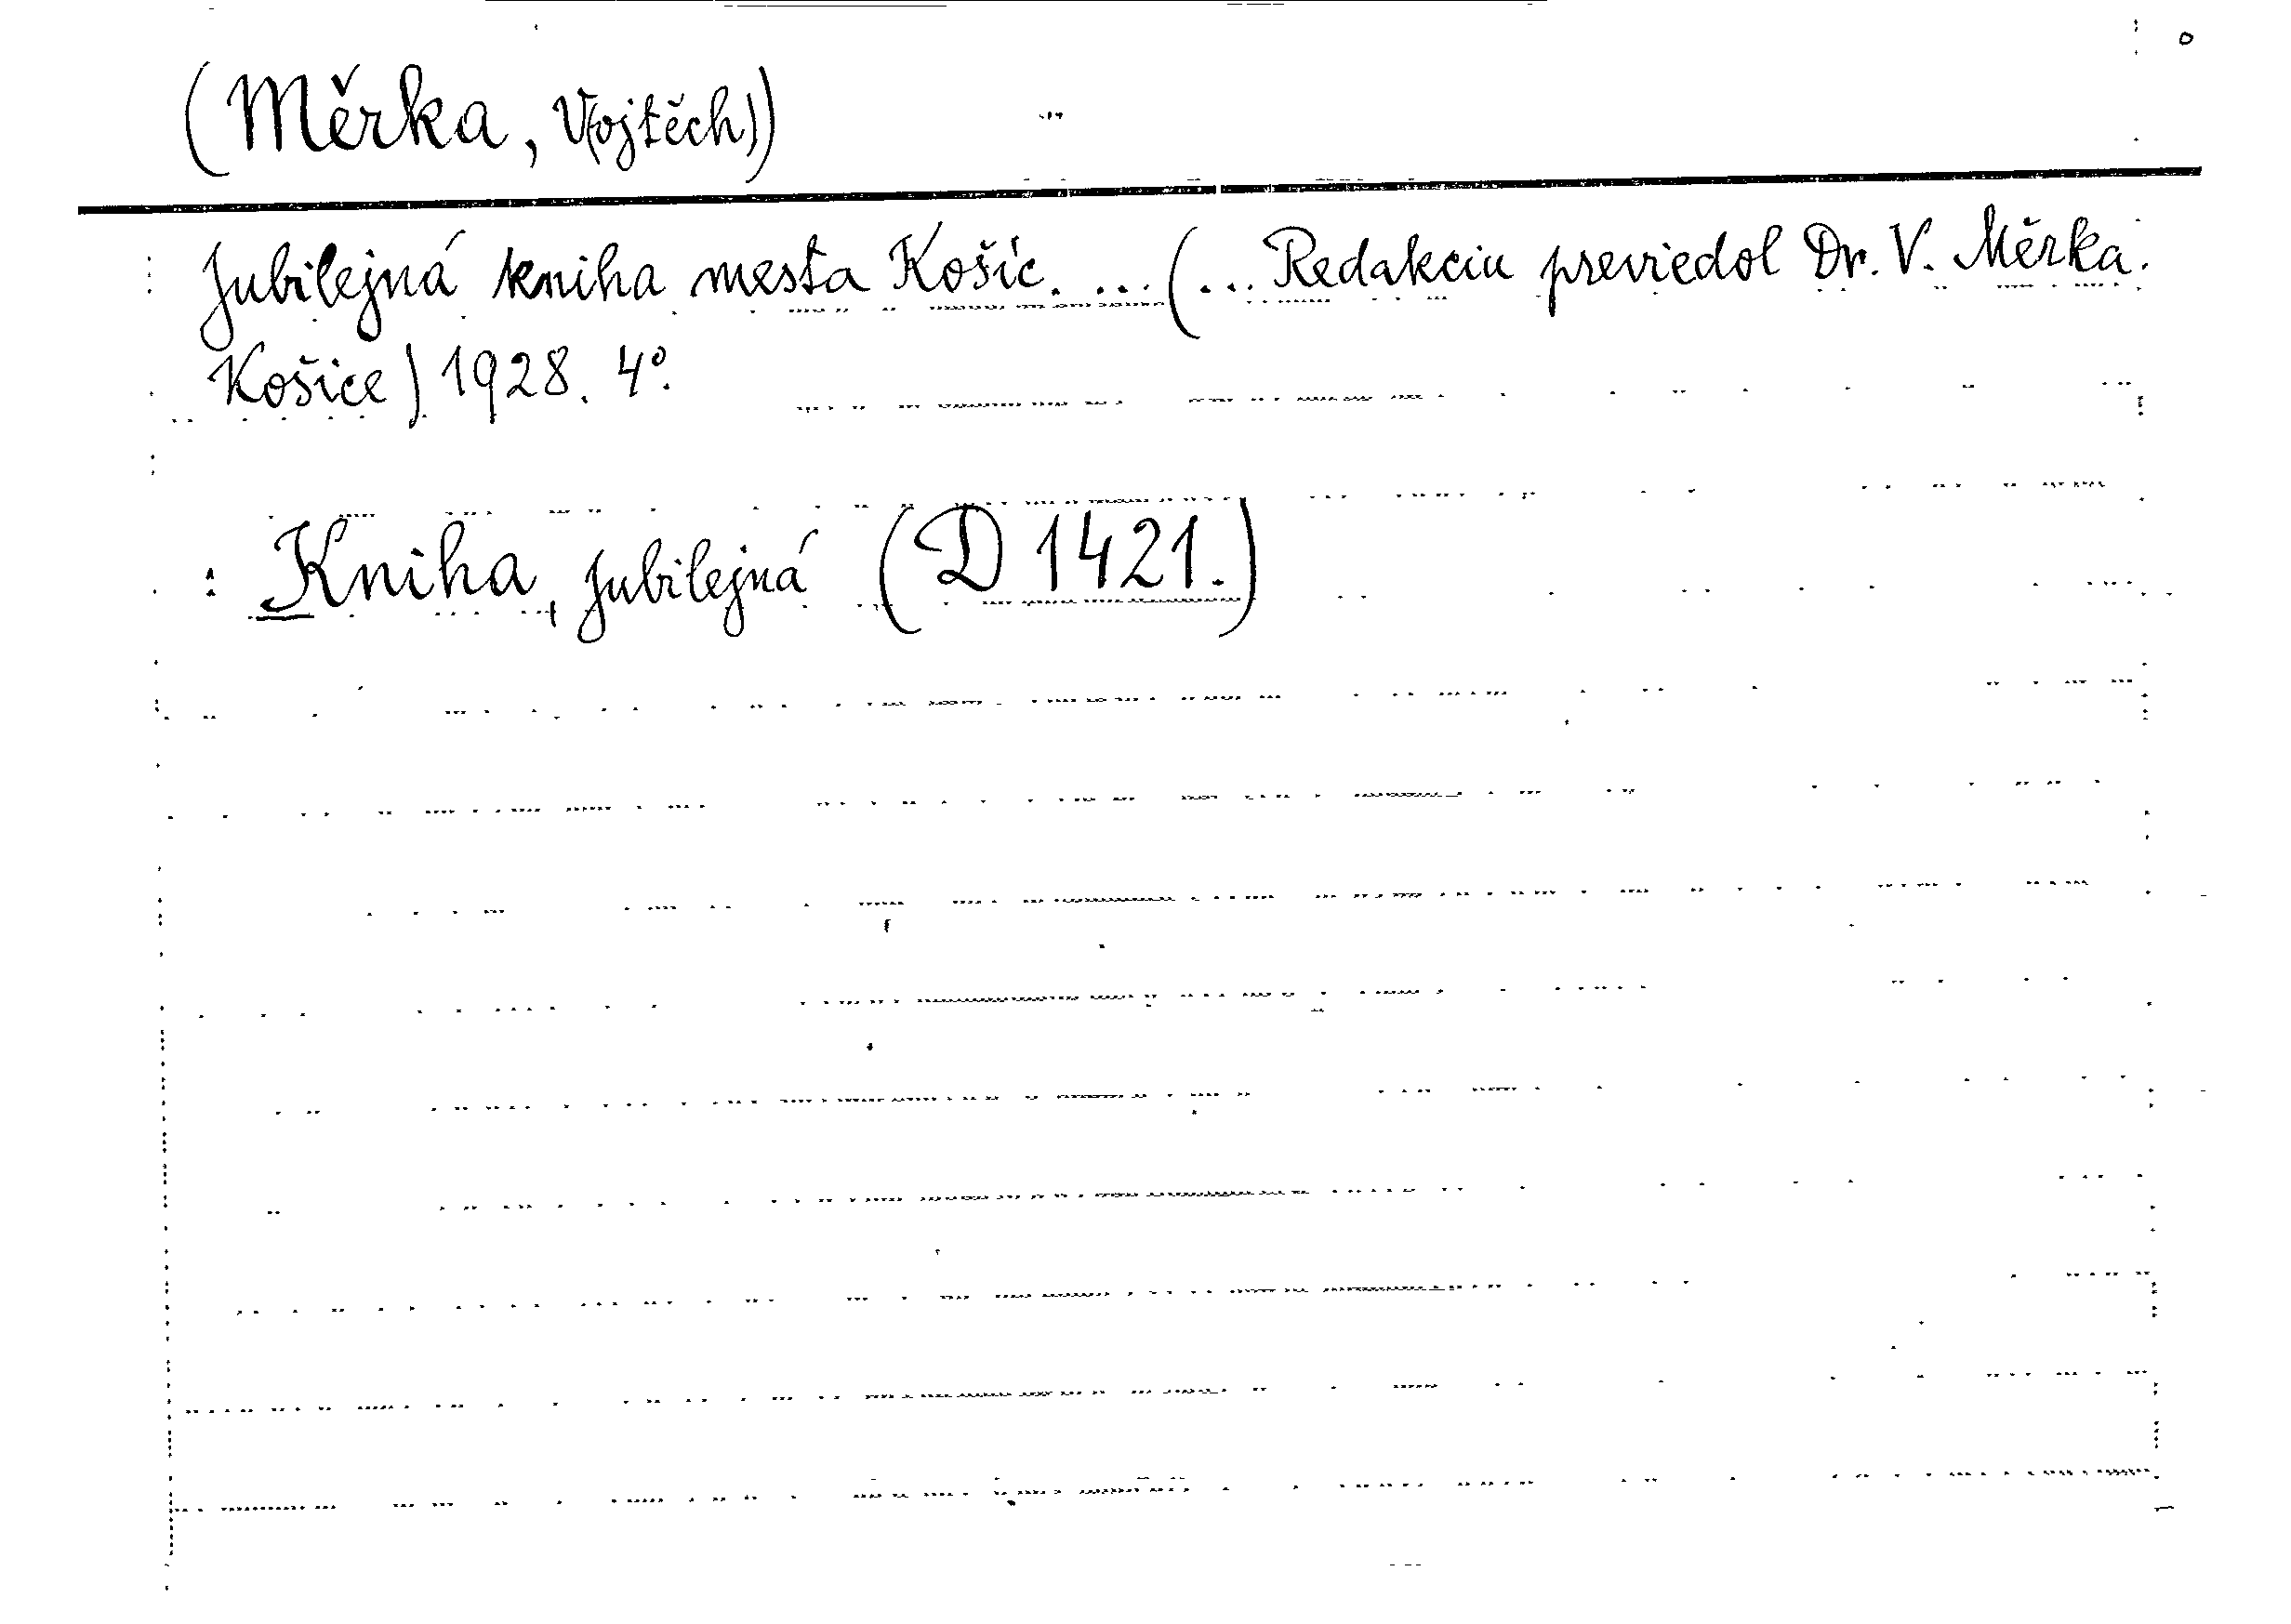 (Měrka, V(ojtěch))
Jubilejná kniha mesta Košíc. ... (... Redakciu previedol Dr. V. Měrka.
Košice) 1928. 4º.
: Kniha, jubilejná (D 1421.)